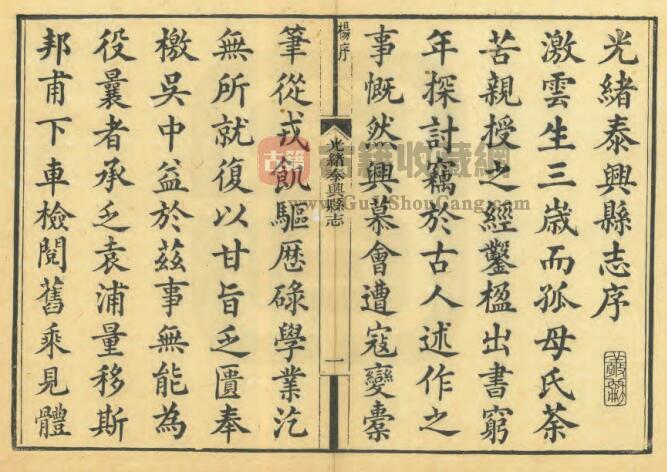 光緒泰興縣志序
激雲生三歲而孤母氏荼
苦親授之經鑿楹出書窮
年探討竊於古人述作之
事慨然興慕會遭寇變橐
楊序
光緒泰興縣志
一
筆從戎飢驅厯碌學業汔
無所就復以甘旨乏匱奉
檄吳中益於茲事無能為
役曩者承乏袁浦量移斯
邦甫下車檢閱舊乘見體
古籍
古籍收藏網
www.GuJiShouGang.com